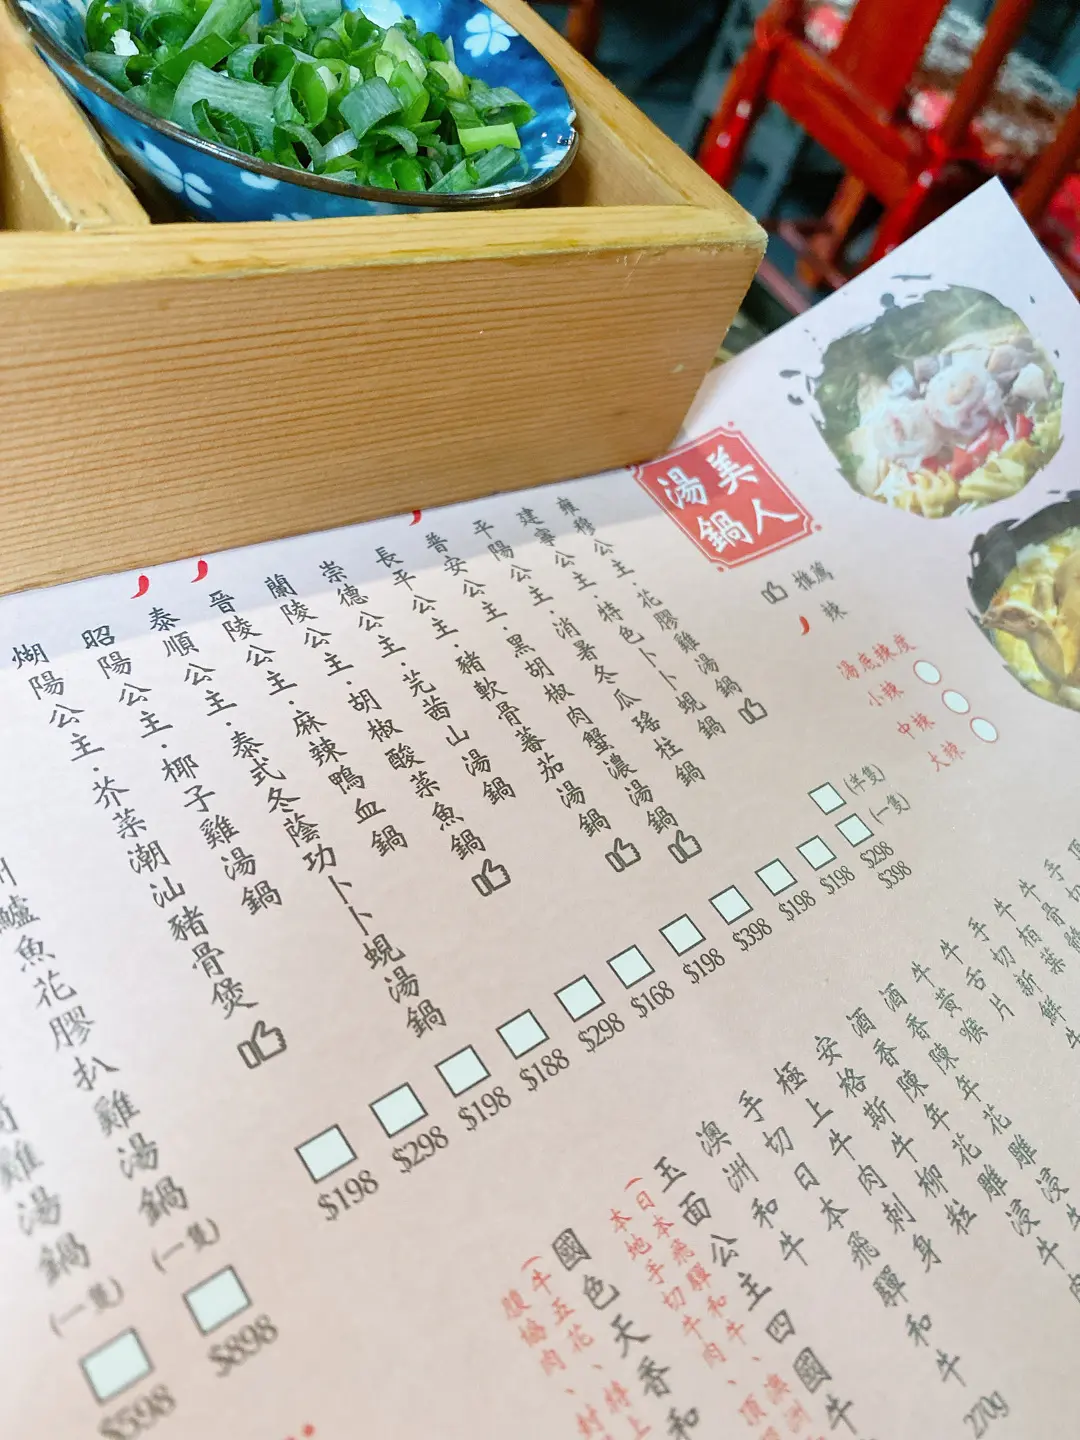 美人
湯鍋
推薦
辣
湯底辣度
小辣
中辣
大辣
雍穆公主·花膠雞湯鍋
(半隻) $298
(一隻) $398
建寧公主·特色卜卜蜆鍋
$198
平陽公主·消暑冬瓜瑤柱鍋
$198
普安公主·黑胡椒肉蟹濃湯鍋
$398
長平公主·豬軟骨蕃茄湯鍋
$198
崇德公主·芫茜山湯鍋
$168
蘭陵公主·胡椒酸菜魚鍋
$298
晉陵公主·麻辣鴨血鍋
$188
泰順公主·泰式冬蔭功卜卜蜆湯鍋
$198
昭陽公主·椰子雞湯鍋
$298
煳陽公主·芥菜潮汕豬骨煲
$198
鱸魚花膠扒雞湯鍋(一隻)
$898
雞湯鍋(一隻)
$598
手切牛舌片
牛黃喉
酒香陳年花雕浸牛
酒香陳年花雕
安格斯牛柳粒
極上牛肉刺身
手切日本飛驒和牛 270g
澳洲和牛
玉面公主四國牛
(日本飛驒和牛、澳洲
本地手切牛肉、頂
國色天香和
(牛五花、特上
腹協肉、封